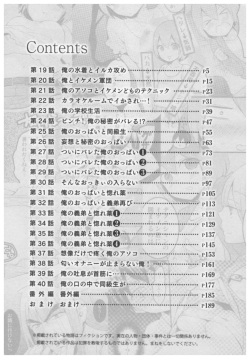 Contents
第19話 俺の水着とイルカ攻め r5
第20話 俺とイケメン軍団 r15
第21話 俺のアソコとイケメンどものテクニック r23
第22話 カラオケルームでイかされ…! r31
第23話 俺の学校生活 r39
第24話 ピンチ!俺の秘密がバレる!? r47
第25話 俺のおっぱいと同級生 r55
第26話 芸尊と秘密のおっぱい r63
第27話 ついにバレた俺のおっぱい❶ r73
第28話 ついにバレた俺のおっぱい❷ r81
第29話 ついにバレた俺のおっぱい❸ r89
第30話 そんなおっきぃの入らない r97
第31話 俺のおっぱいと惚れ薬 r105
第32話 俺のおっぱいと義弟再び r113
第33話 俺の義弟と惚れ薬❶ r121
第34話 俺の義弟と惚れ薬❷ r129
第35話 俺の義弟と惚れ薬❸ r137
第36話 俺の義弟と惚れ薬❹ r145
第37話 想像だけで疼く俺のアソコ r153
第38話 匂いオナニーが止まらない俺! r161
第39話 俺の吐息が首筋に… r169
第40話 俺の口の中で同級生が r177
番外編 番外編 r185
おまけ おまけ r189
※掲載されている物語はフィクションです。実在の人物・団体・事件とは一切関係ありません。